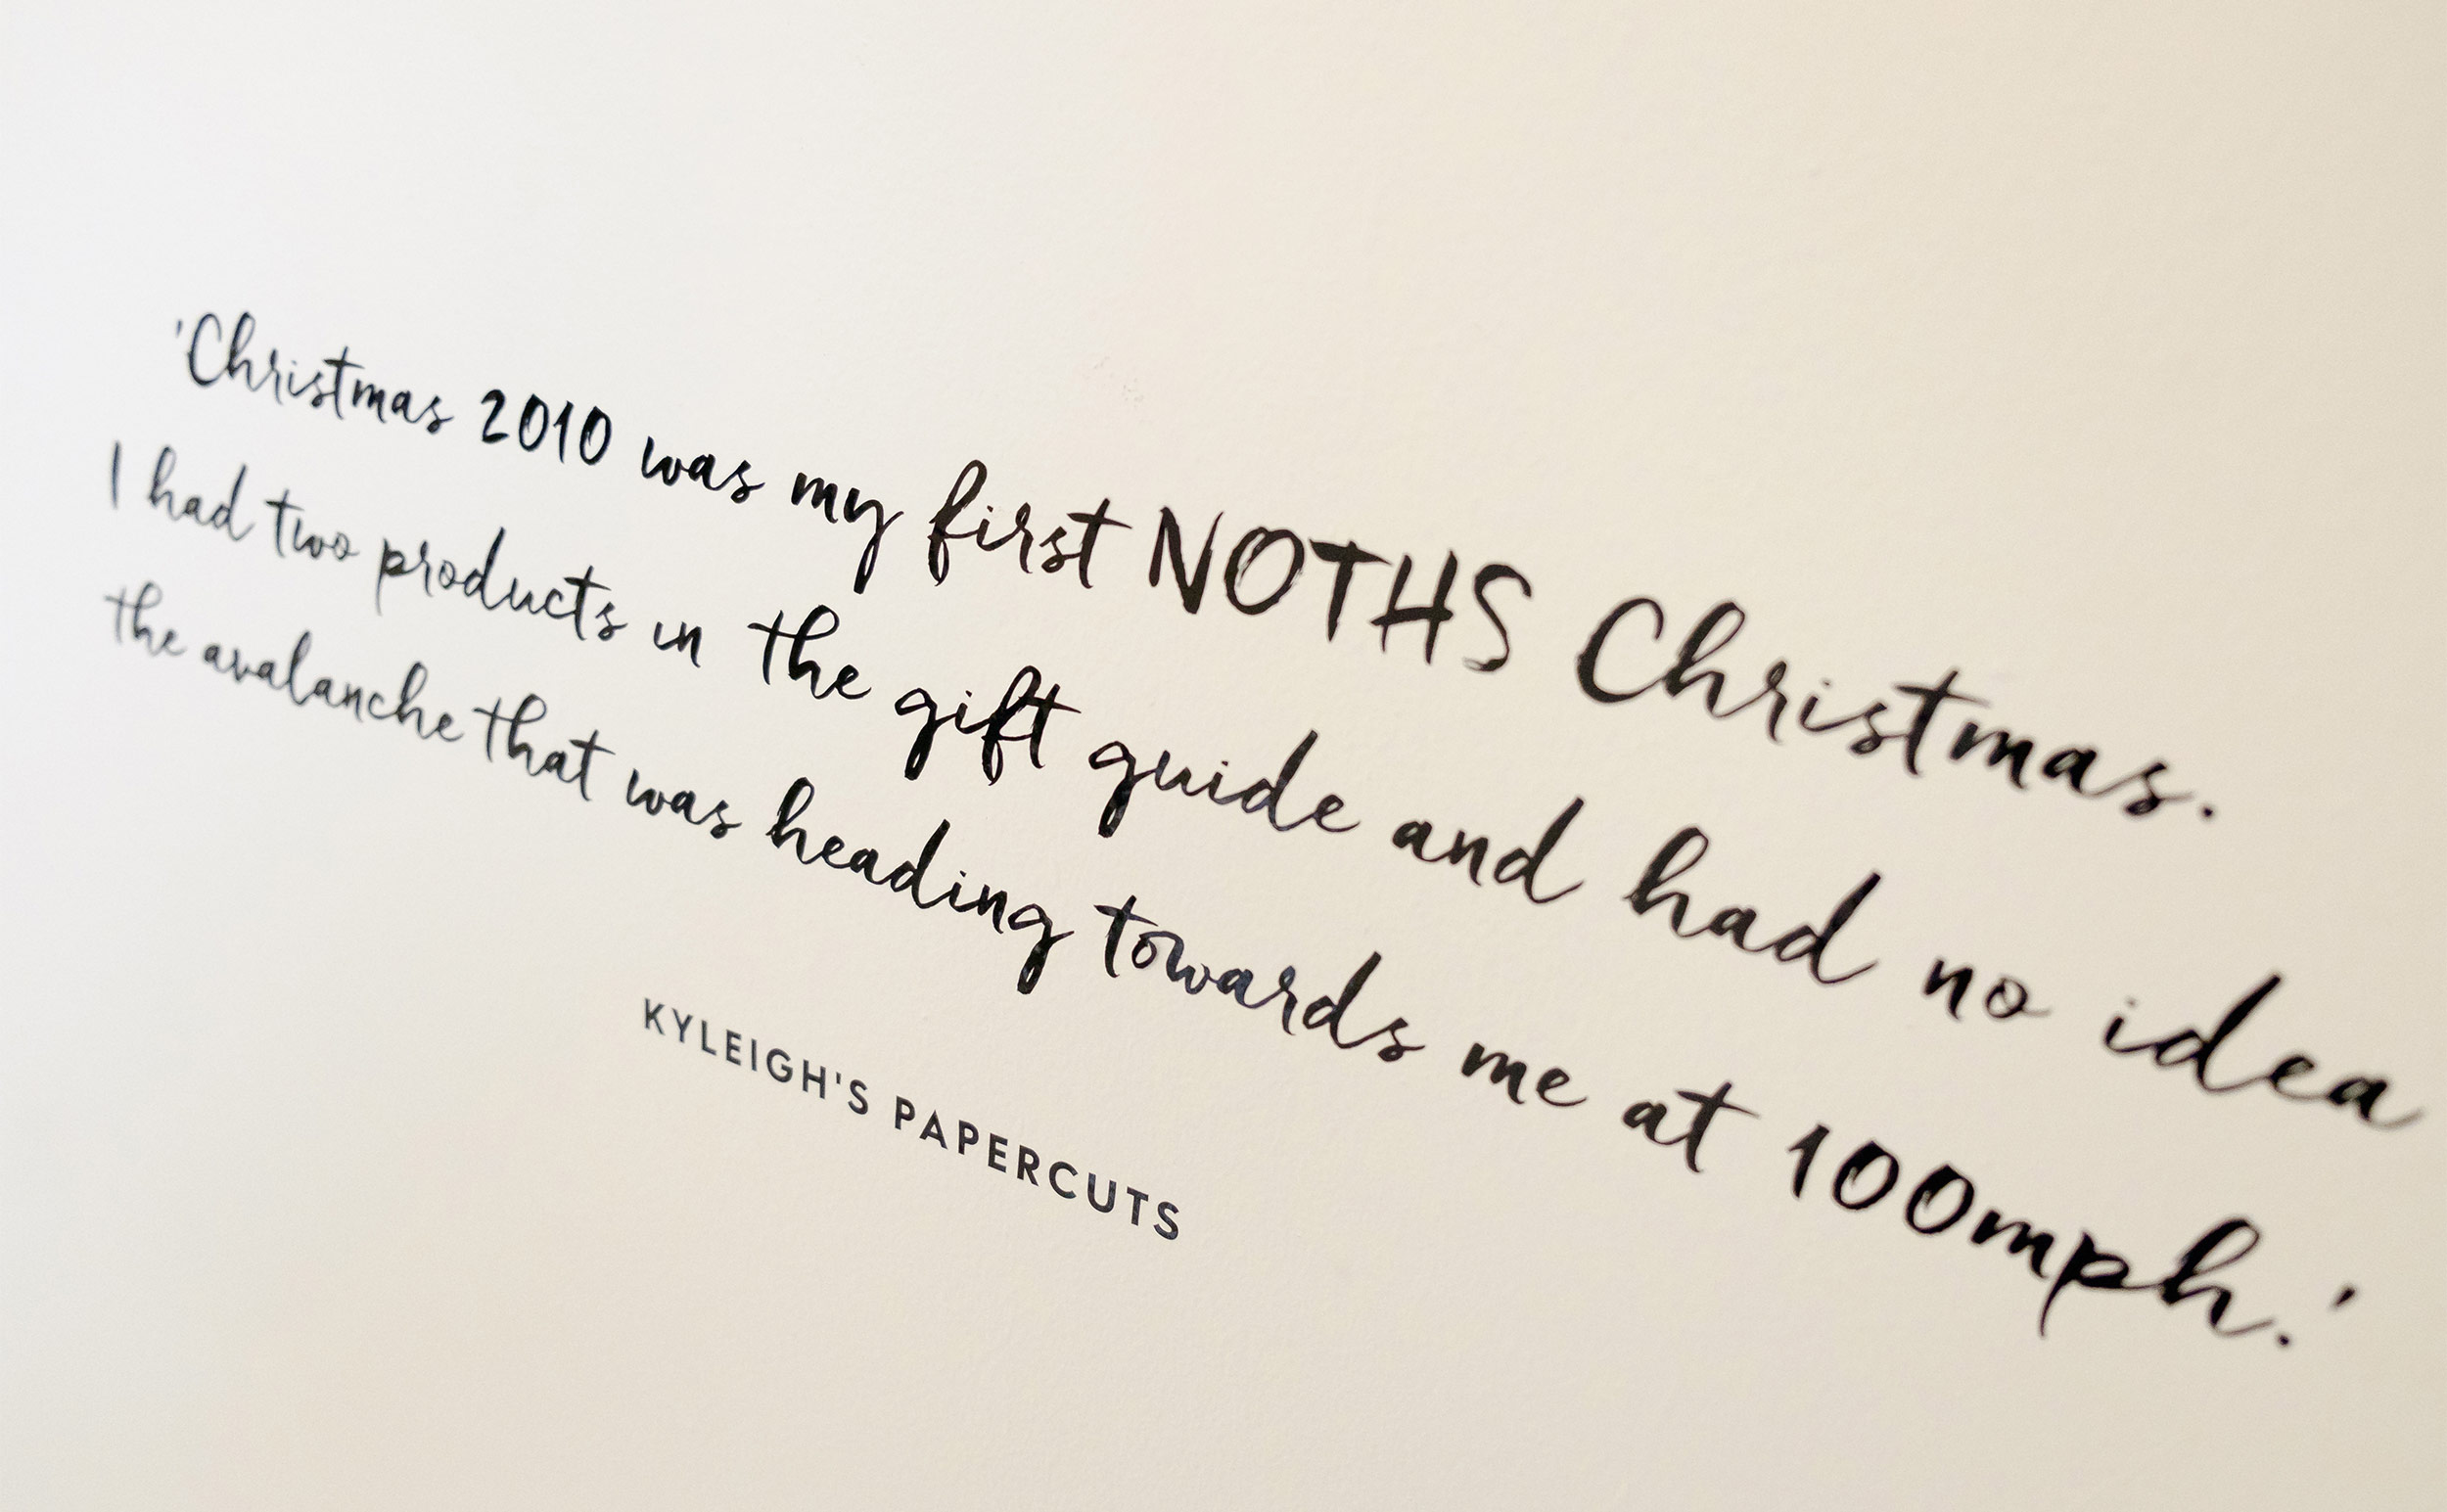 'Christmas 2010 was my first NOTHS Christmas.
I had two products in the gift guide and had no idea
the avalanche that was heading towards me at 100mph.'
KYLEIGH'S PAPERCUTS